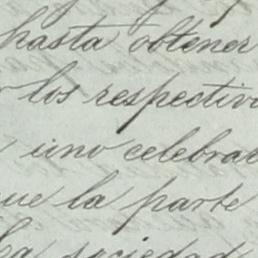 hasta obtener
los respectiv
uno celebra
ue la parte
La sociedad